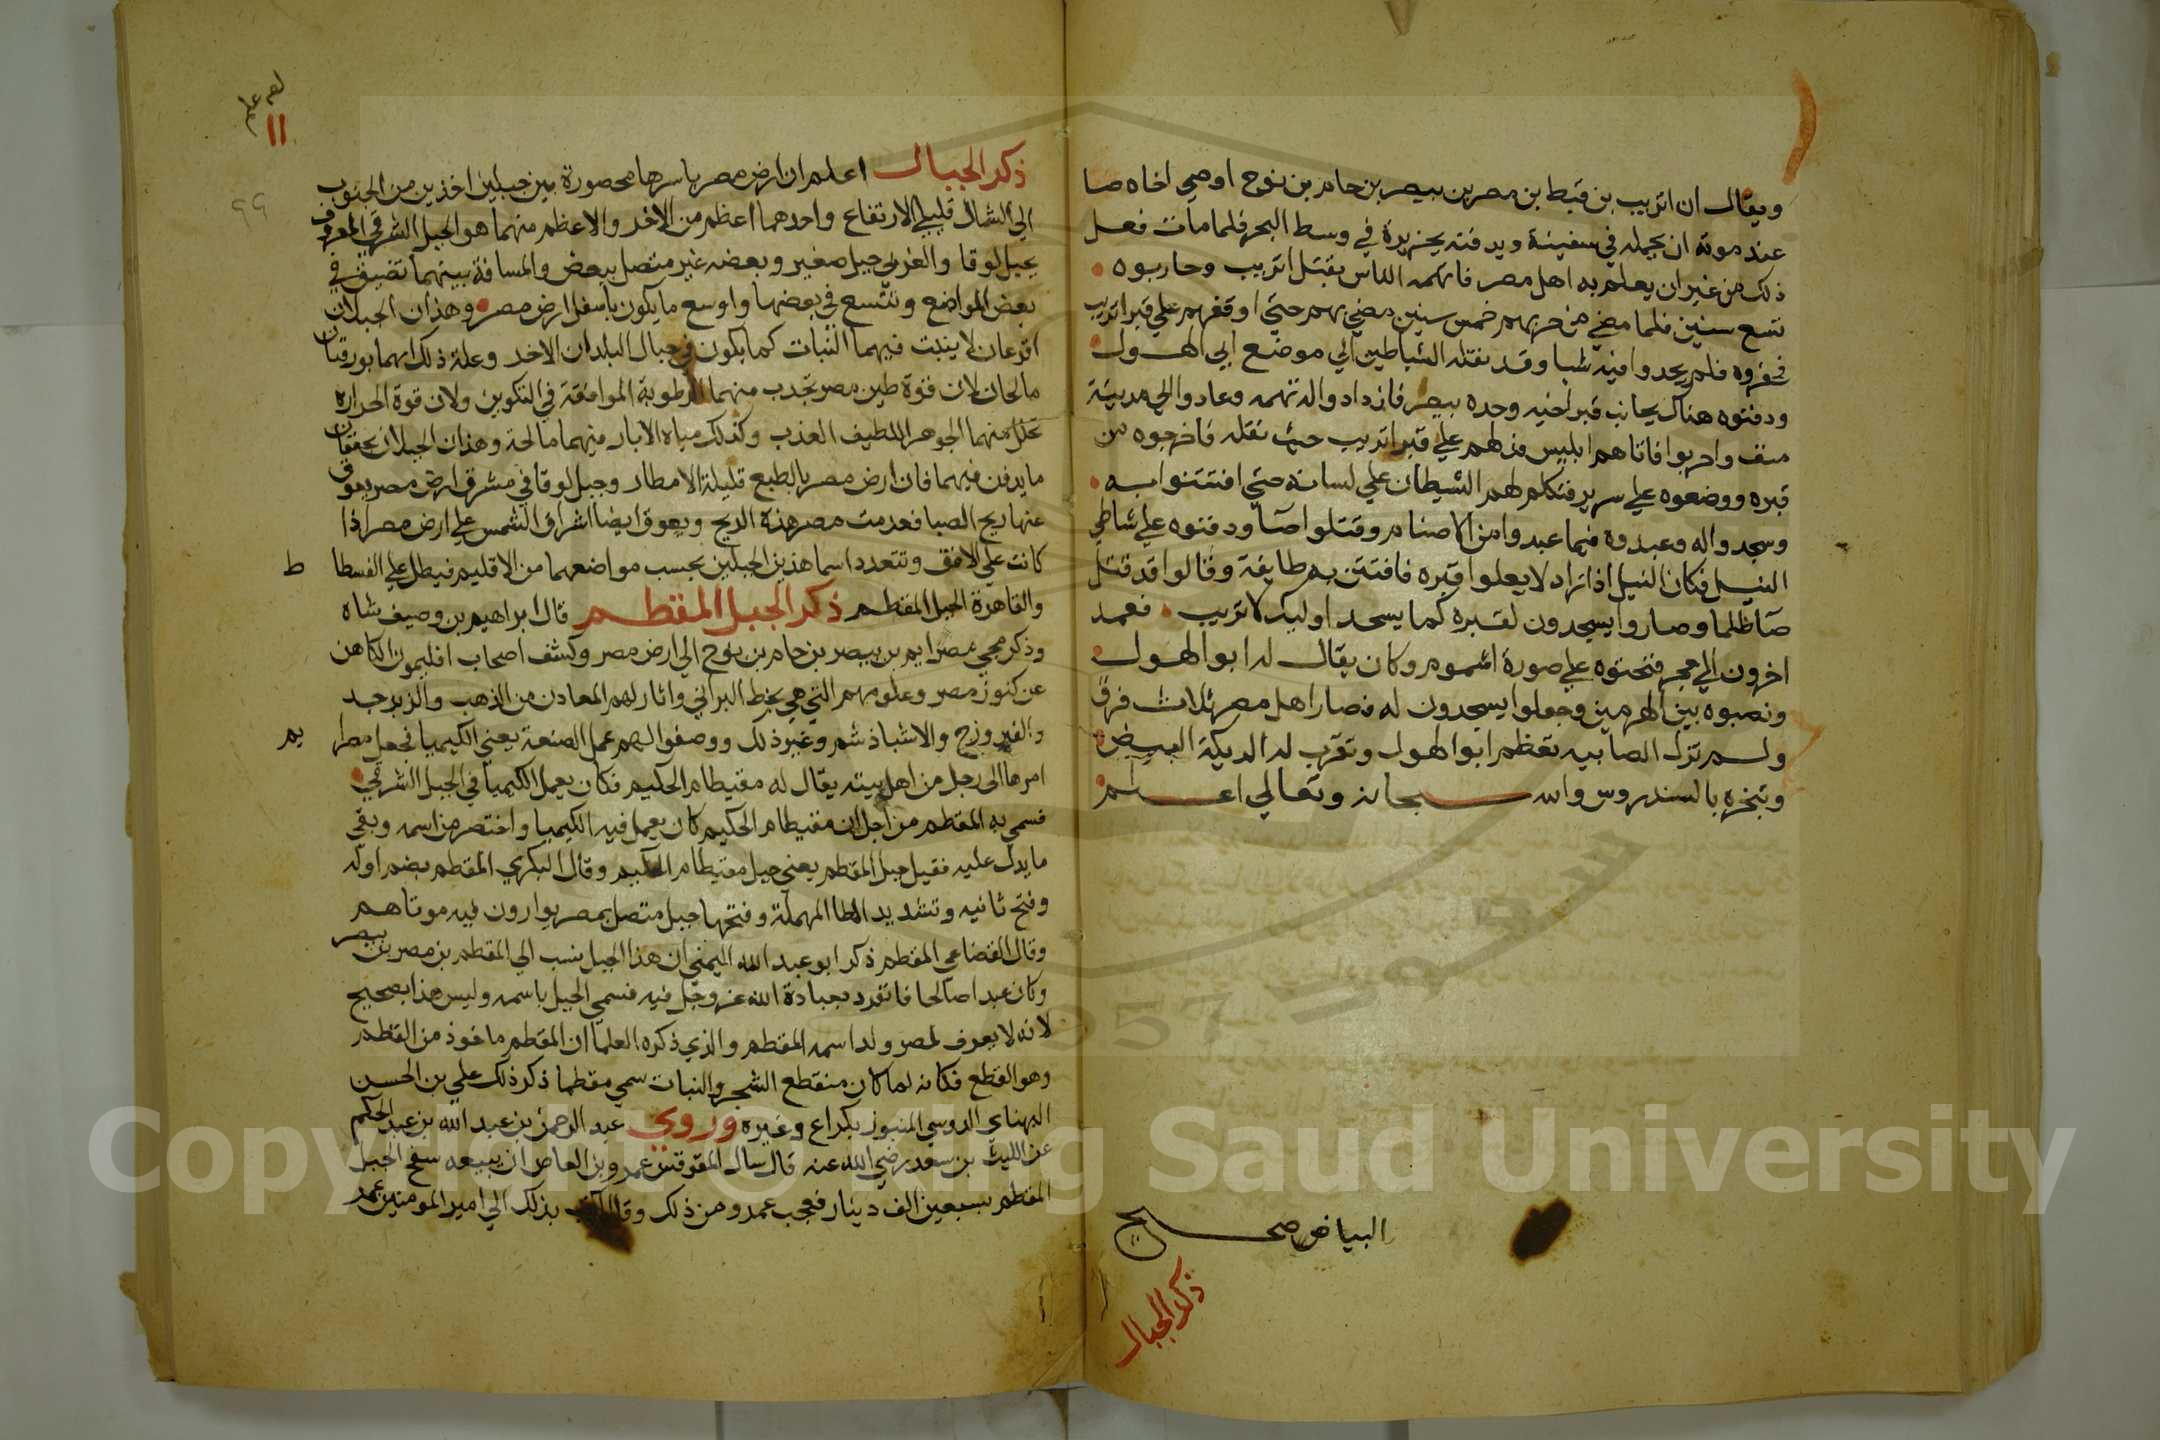 ويقال ان اتريب بن قبط بن مصر بن بيصر بن حام بن نوح اوصي اخاه صا
عند موته ان يحمله في سفينة ويدفنه بجزيرة في وسط البحر فلما مات فعل
ذلك من غير ان يعلم به اهل مصر فاتهمه الناس بقتل اتريب وحاربوه
تسع سنين فلما مضي من حربهم خمس سنين مضي بهم حتي اوقفهم علي قبر اتريب
فحفروه فلم يجدوا فيه شيا وقد نقلته الشياطين الي موضع ابي الهول
ودفنوه هناك بجانب قبر اخيه وجده بيصر فازدادوا له تهمه وعادوا الي مدينة
منف واحربوا فاتاهم ابليس فدلهم علي قبر اتريب حيث نقله فاخرجوه من
قبره ووضعوه علي سرير فتكلم لهم الشيطان علي لسانه حتي افتتنوا به
وسجدوا له وعبدوه فيما عبدوا من الاصنام وقتلوا صا ودفنوه علي شاطي
النيل فكان النيل اذا زاد لا يعلوا قبره فافتتن به طايفة وقالوا قد قتل
صا ظلما وصاروا يسجدون لقبره كما يسجد اوليك لاتريب فعمد
اخرون الي حجر فنحتوه علي صورة اشموم وكان يقال له ابو الهول
ونصبوه بين الهرمين وجعلوا يسجدون له فصار اهل مصر ثلاث فرق
ولم تزل الصابيه تعظم ابوا الهول وتقرب له الديكة البيض
وتبخره بالسندروس والله سبحانه وتعالي اعلم
البياض صحيح
ذكر الجبال
١١
٩٩
ذكر الجبال اعلم ان ارض مصر باسرها محصورة بين جبلين اخذين من الجنوب
الي الشمال قليلي الارتفاع واحدهما اعظم من الاخر والاعظم منهما هو الجبل الشرقي المعروف
بجبل لوقا والغربي جبل صغير وبعضه غير متصل ببعض والمسافة بينهما تضيق في
بعض المواضع وتتسع في بعضها واوسع ما يكون باسفل ارض مصر وهذان الجبلان
اقرعان لا ينبت فيهما النبات كما يكون في جبال البلدان الاخر وعلة ذلك انهما بورقيان
مالحان لان قوة طين مصر تجدب منهما الرطوبة الموافقة في التكوين ولان قوة الحراره
تحلل منهما الجوهر اللطيف العذب وكذلك مياه الابار منهما مالحة وهذان الجبلان يجففان
ما يدفن فيهما فان ارض مصر بالطبع قليلة الامطار وجبل لوقا في مشرق ارض مصر يعوق
عنها ريح الصبا فعدمت مصر هذه الريح ويعوق ايضا اشراق الشمس علي ارض مصر اذا
كانت علي الافق وتتعدد اسما هذين الجبلين بحسب مواضعهما من الاقليم فيطل علي الفسطا ط
والقاهرة الجبل المقطم ذكر الجبل المقطم قال ابراهيم بن وصيف شاه
وذكر مجي مصرايم بن بيصر بن حام بن نوح الي ارض مصر وكشف اصحاب اقليمون الكاهن
عن كنوز مصر وعلومهم التي هي بخط البرابي واثار لهم المعادن من الذهب والزبرجد
والفيروزج والاشباذشم وغير ذلك ووصفوا لهم عمل الصنعة يعني الكيميا فجعل مصرا يم
امرها الي رجل من اهل بيته يقال له مقيطام الحكيم فكان يعمل الكيميا في الجبل الشرقي
فسمي به المقطم من اجل ان مقيطام الحكيم كان يعمل فيه الكيميا واختصر من اسمه وبقي
ما يدل عليه فقيل جبل المقطم يعني جبل مقيطام الحكيم وقال البكري المقطم بضم اوله
وفتح ثانيه وتشديد الطا المهملة وفتحها جبل متصل بمصر يوارون فيه موتاهم
وقال القضاعي المقطم ذكر ابو عبد الله اليمني ان هذا الجبل ينسب الي المقطم بن مصر بن بيصر
وكان عبدا صالحا فانفرد بعبادة الله عز وجل فيه فسمي الجبل باسمه وليس هذا بصحيح
لانه لا يعرف لمصر ولد اسمه المقطم والذي ذكره العلما ان المقطم ماخوذ من القطم
وهو القطع فكانه لما كان منقطع الشجر والنبات سمي مقطما ذكر ذلك علي بن الحسن
الهناي الدوسي المنبوز بكراع وغيره وروي عبد الرحمن بن عبد الله بن عبد الحكم
عن الليث بن سعد رضي الله عنه قال سال المقوقس عمرو بن العاص ان يبيعه سفح الجبل
المقطم بسبعين الف دينار فعجب عمرو من ذلك وقال اكتب بذلك الي امير المومنين عمر